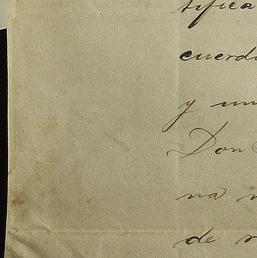 tifica
cuerd
y un
Don
na
de